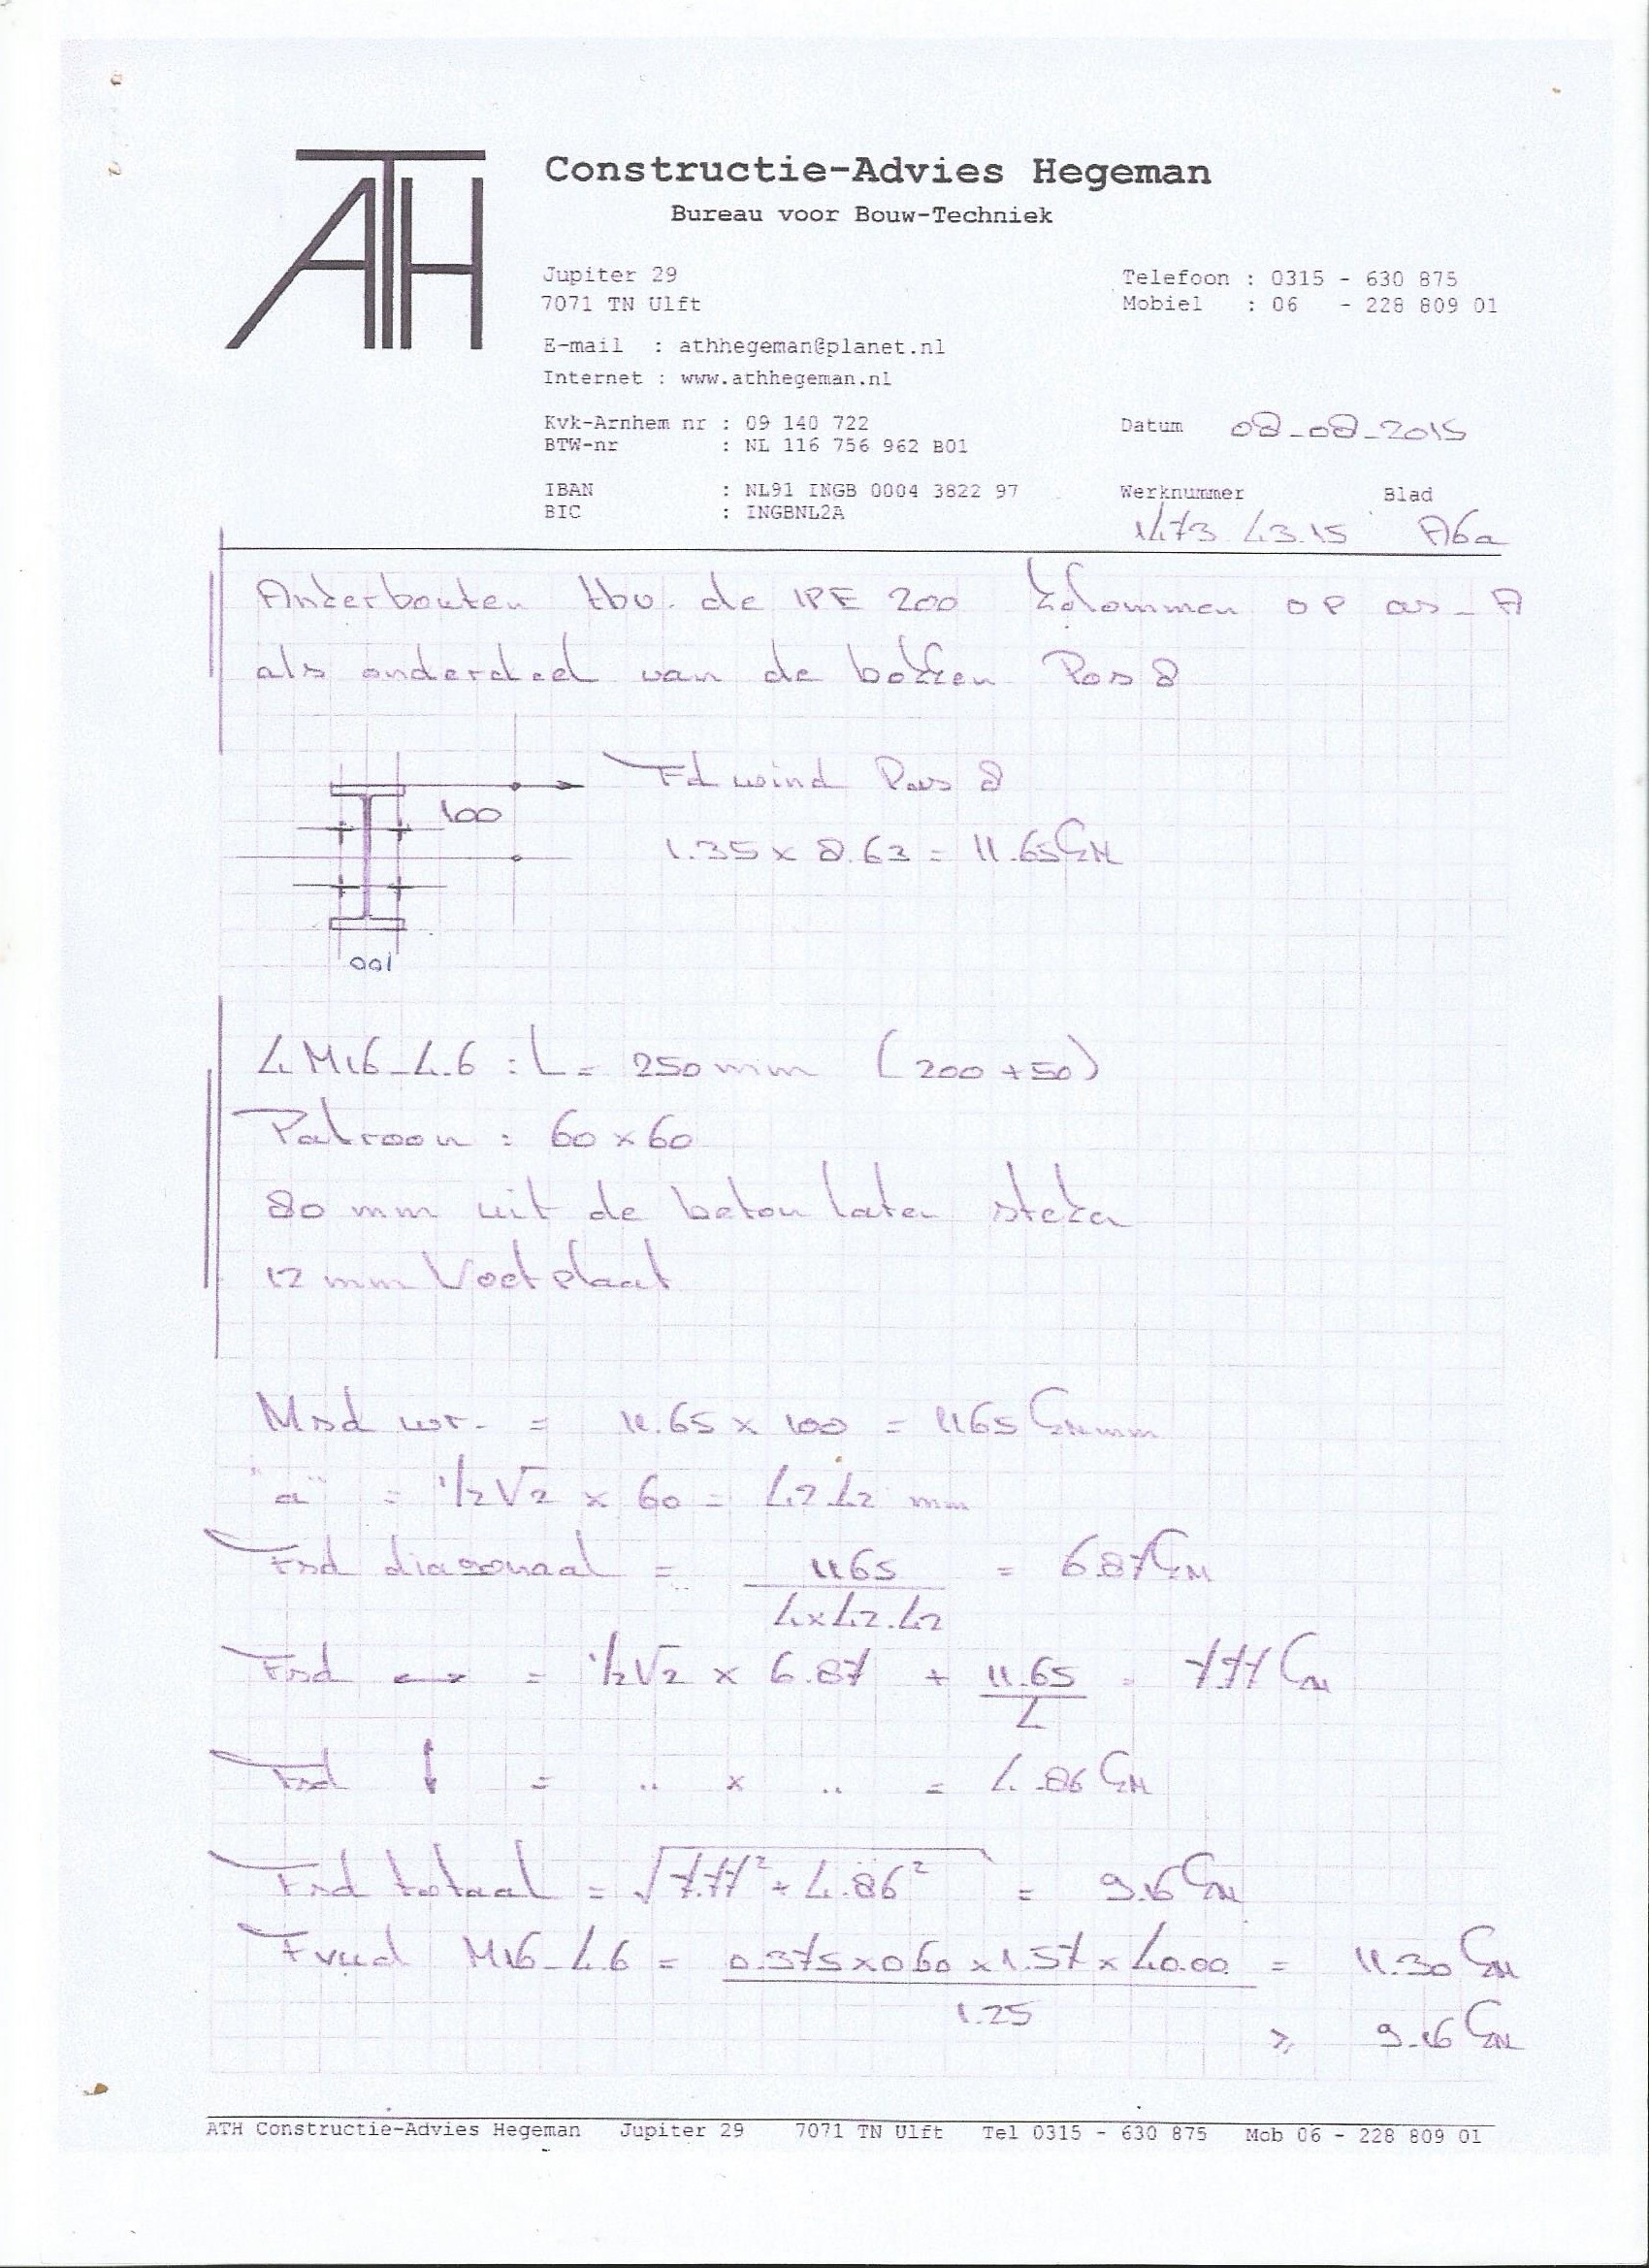 ATH
Constructie-Advies Hegeman
Bureau voor Bouw-Techniek
Jupiter 29
7071 TN Ulft
Telefoon : 0315 - 630 875
Mobiel : 06 - 228 809 01
E-mail : athhegeman@planet.nl
Internet : www.athhegeman.nl
Kvk-Arnhem nr : 09 140 722
BTW-nr : NL 116 756 962 B01
Datum 08-08-2015
IBAN : NL91 INGB 0004 3822 97
BIC : INGBNL2A
Werknummer Blad
1473.43.15 A6a
Ankerbouten tbv. de IPE 200 kolommen op as-A
als onderdeel van de bokken Pos 8
Fd wind Pos 8
100
1.35 x 8.63 = 11.65 kN
100
4 M16-4.6 : L = 250 mm (200 + 50)
Patroon : 60 x 60
80 mm uit de beton laten steken
12 mm Voetplaat
Msd wr. = 11.65 x 100 = 1165 kNmm
"a" = 1/2√2 x 60 = 42.42 mm
Fsd diagonaal = 1165 / 4x42.42 = 6.87 kN
Fsd ↔ = 1/2√2 x 6.87 + 11.65 / 4 = 7.77 kN
Fsd ↕ = .. x .. = 4.86 kN
Fsd totaal = √7.77² + 4.86² = 9.16 kN
Fvud M16-4.6 = 0.375 x 0.60 x 1.57 x 40.00 / 1.25 = 11.30 kN
≥ 9.16 kN
ATH Constructie-Advies Hegeman Jupiter 29 7071 TN Ulft Tel 0315 - 630 875 Mob 06 - 228 809 01